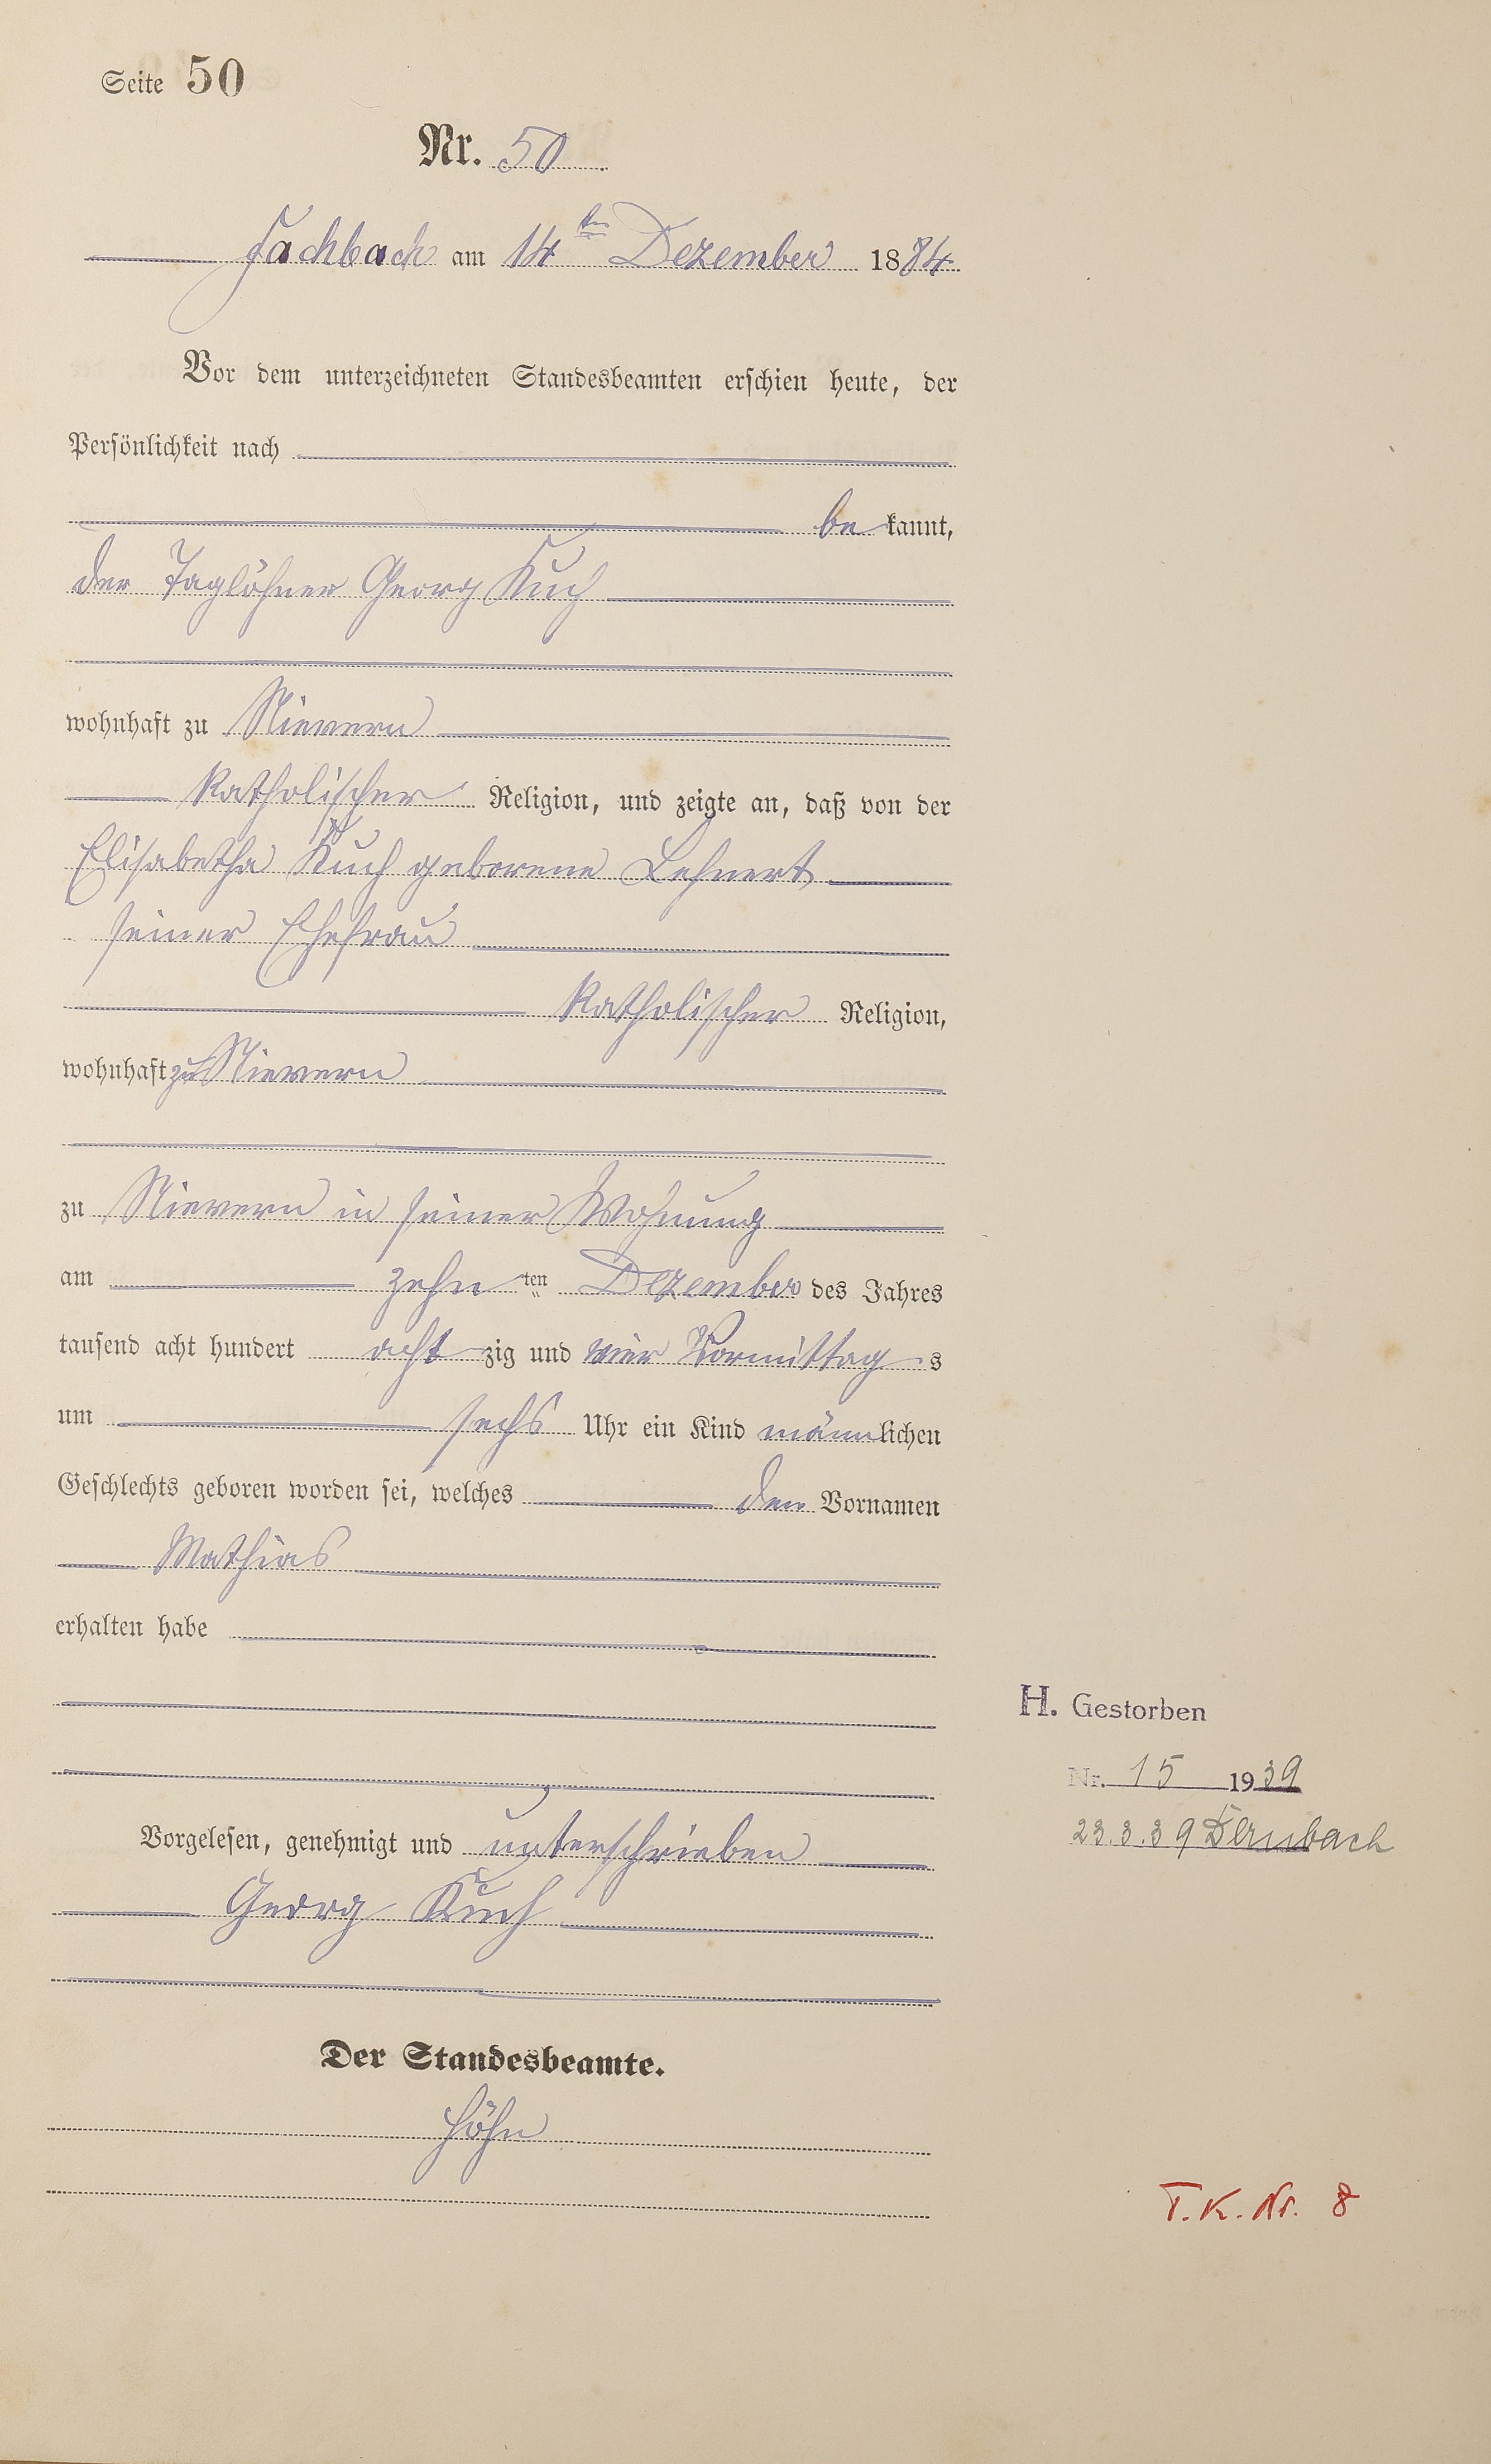 Seite 50
Nr. 50
Fachbach am 14ten Dezember 1884
Vor dem unterzeichneten Standesbeamten erschien heute, der
Persönlichkeit nach
bekannt,
der Taglöhner Georg Kuch
wohnhaft zu Nievern
katholischer Religion, und zeigte an, daß von der
Elisabetha Kuch geborene Lehnert
seiner Ehefrau
katholischer Religion,
wohnhaft zu Nievern
zu Nievern in seiner Wohnung
am zehnten Dezember des Jahres
tausend acht hundert achtzig und vier Vormittags
um sechs Uhr ein Kind männlichen
Geschlechts geboren worden sei, welches den Vornamen
Mathias
erhalten habe
H. Gestorben
Nr. 15 1939
23.3.39 Dernbach
Vorgelesen, genehmigt und unterschrieben
Georg Kuch
Der Standesbeamte.
Höhn
T.K.Nr. 8